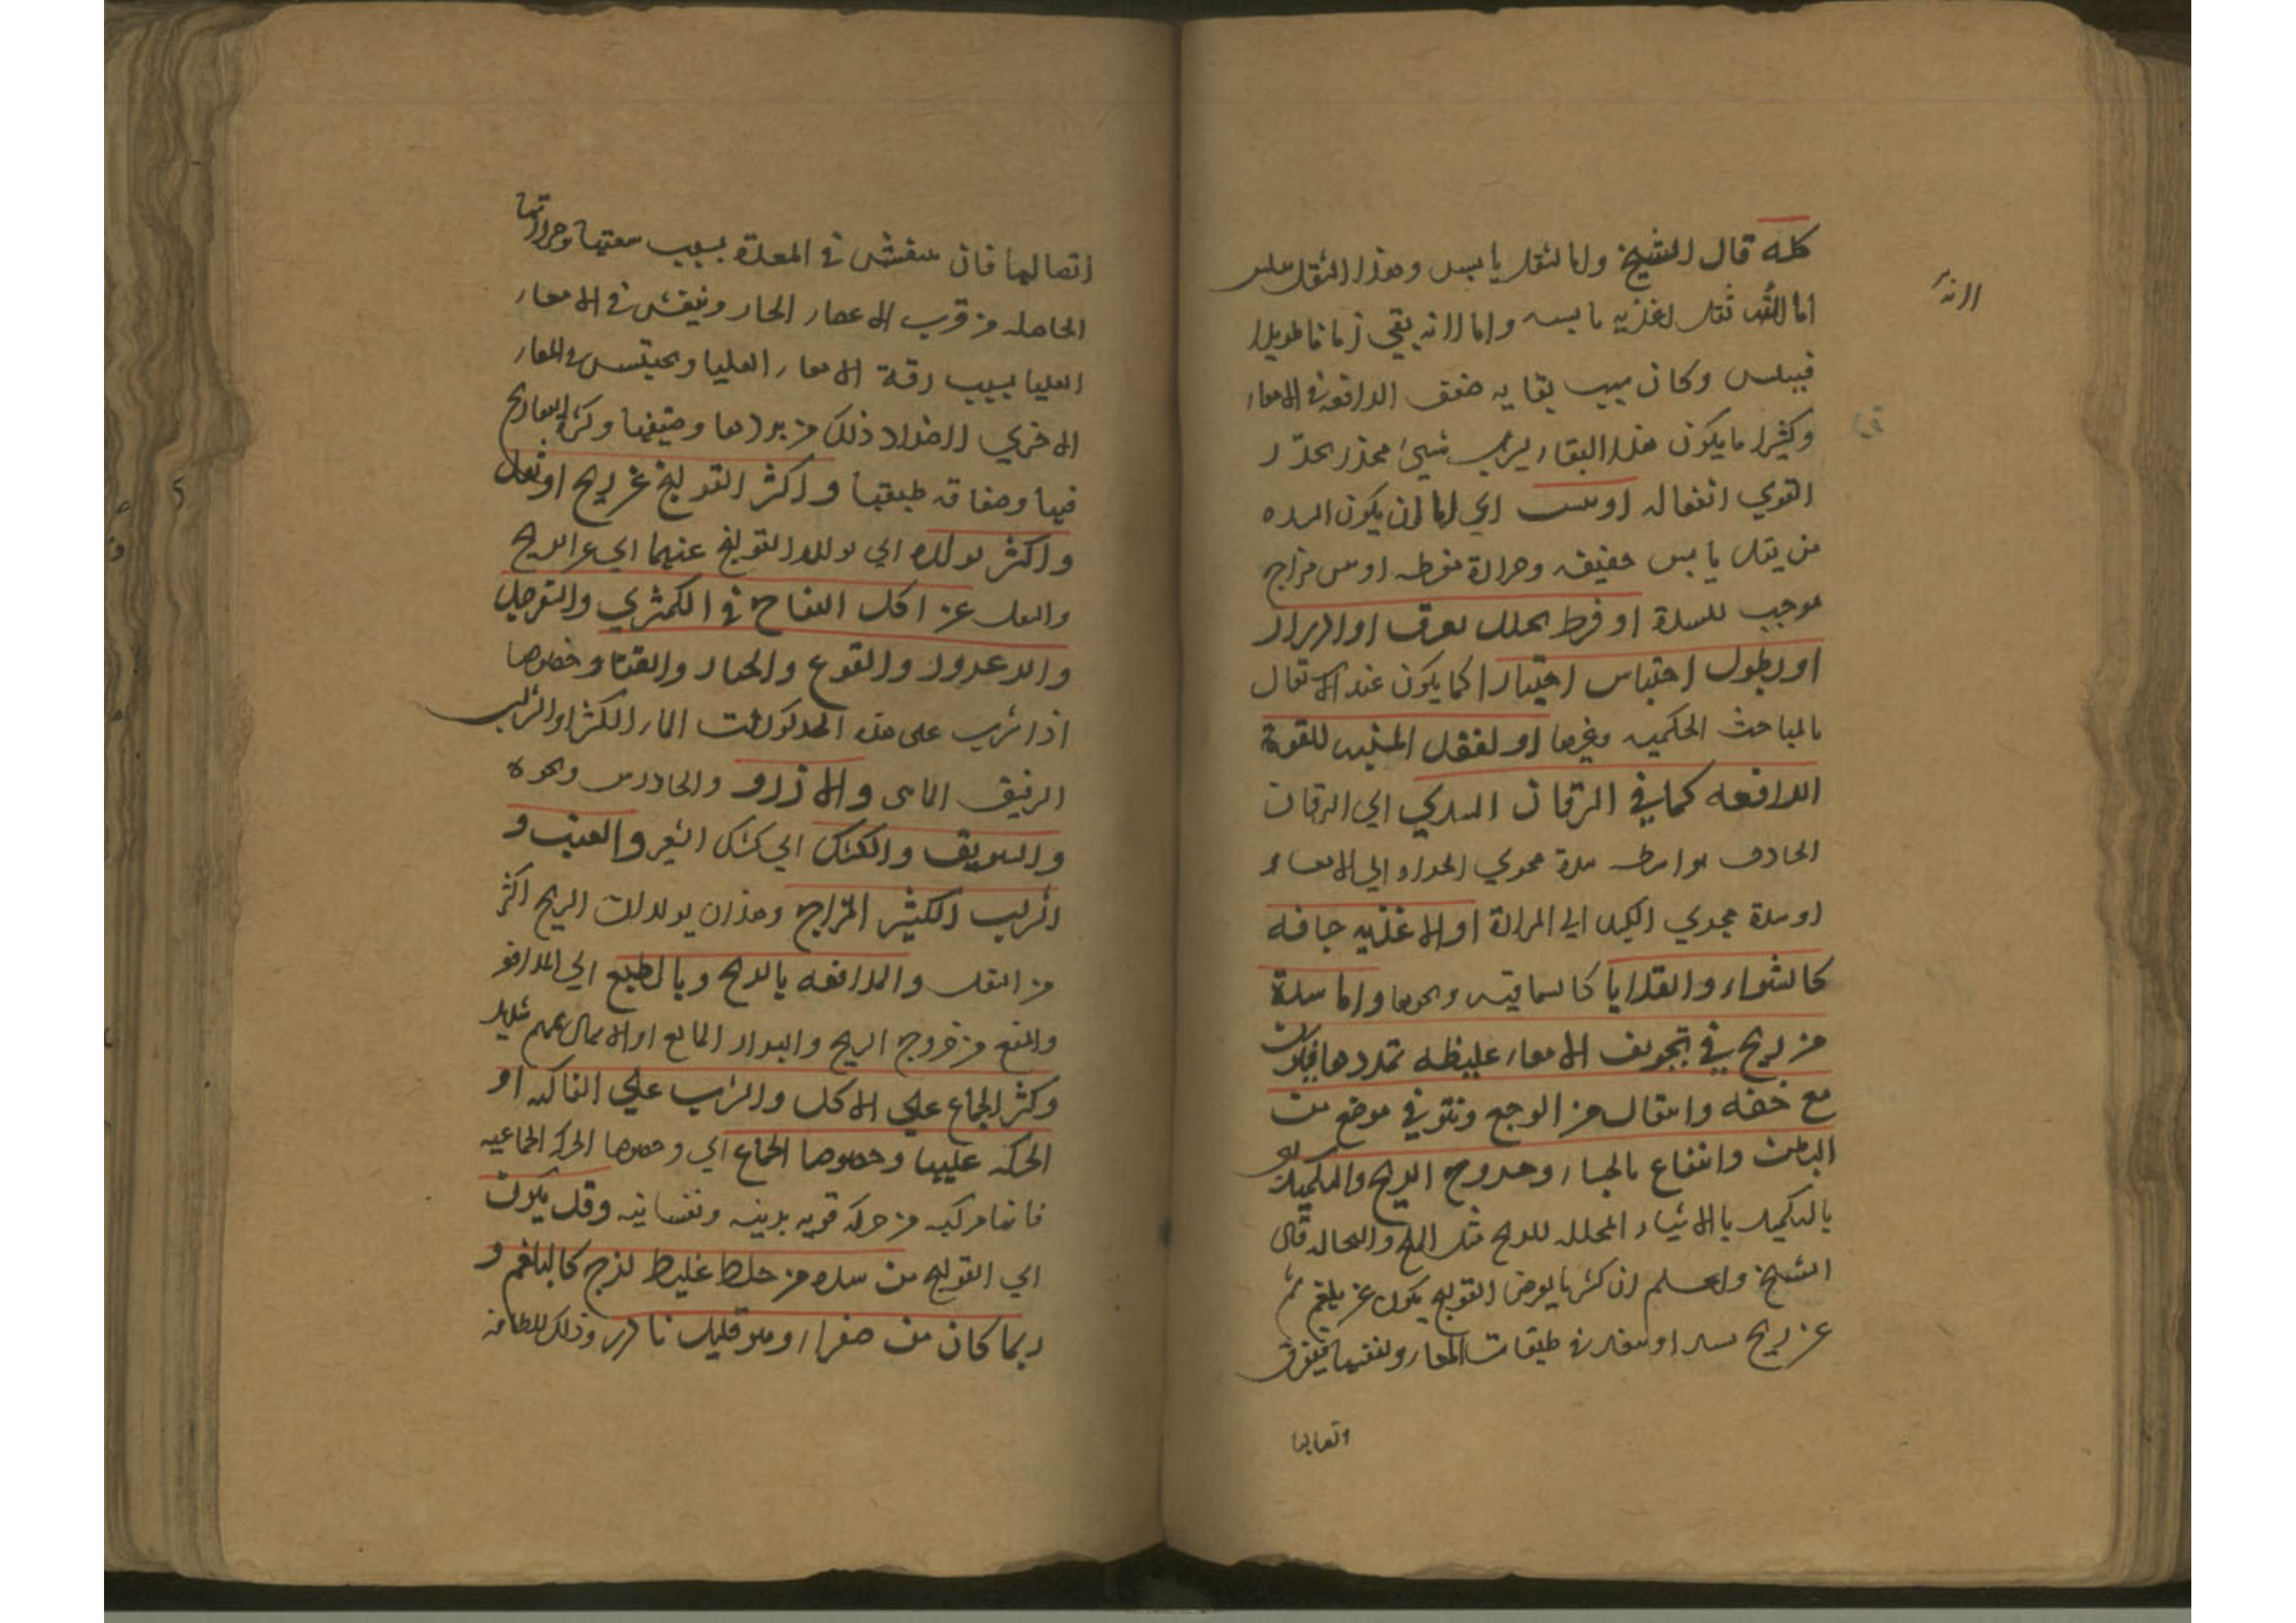 كله قال الشيخ واما لثفل يابس وهذا الثفل
اما لانه ثفل اغذيه يابسه واما لانه بقي زمانا طويلا
فييبس وكان سبب بقايه ضعف الدافعة في الامعاء
وكثيرا ما يكون هذا البقاء لشرب شيئ مخدر يخدر
القوي انفعاله او يبس اي اما ان يكون السده
من ثفل يابس حقيقه وحرارة مفرطه او من مزاج
موجب للسدة او فرط تحلل بعرق او ادرار
او بطول احتباس اختيارا كما يكون عند الاشتغال
بالمباحث الحكميه وغيرها او لفقد المنبه للقوة
الدافعه كما في اليرقان السدي اي اليرقان
الحادث بواسطه سدة مجري المراره الي الامعاء
او سدة مجري الكبد الي المرارة او لاغذيه جافه
كالشواء والقلايا كالسماقيه ونحوها واما سدة
من ريح في تجويف الامعاء غليظه تمددها فيكون
مع خفه وانتقال من الوجع ونتو في موضع من
البطن وانتفاع بالجشاء وخروج الريح والتكميد اي
بالتكميد بالاشياء المحلله للريح مثل الملح والنخاله قال
الشيخ واعلم ان اكثر ما يعرض القولنج يكون عن بلغم ثم
عن ريح تسد او تنفذ في طبقات المعاء ولفتها فيفرق
اتصالها
الانه
اتصالها فان ينفش في المعدة بسبب سعتها وحرارتها
الحاصله من قرب الاعضاء الحار وينفش في الامعاء
العليا بسبب رقة الامعاء العليا ويحتبس في المعاء
الاخري لاضداد ذلك من بردها وضيقها وكثرة التعاريج
فيها وصفاقه طبقتها واكثر القولنج عن ريح او ثفل
واكثر تولده اي تولد القولنج عنهما اي عن الريح
والثفل عن اكل التفاح في الكمثري والسفرجل
والزعرور والقرع والخيار والقثاء وخصوصا
اذا شرب على هذه الماكولات الماء الكثير او الشراب
الرقيق المائي والارز والجاورس ونحوه
والسويق والكشك اي كشك الشعير والعنب و
الشرب الكثير المزاج وهذان يولدان الريح اكثر
من الثفل والمدافعه بالريح وبالطبع اي المدافع
والمنع من خروج الريح والبراز المايع او الاسهال
وكثر الجماع علي الاكل والشرب علي الفاكه او
الحركه عليها وخصوصا الجماع اي وخصوصا الحركه الجماعيه
فانها مركبه من حركه قويه بدنيه ونفسانيه وقد يكون
اي القولنج من سده من خلط غليظ لزج كالبلغم و
ربما كان من صفراء وهو قليل نادر وذلك للطافته